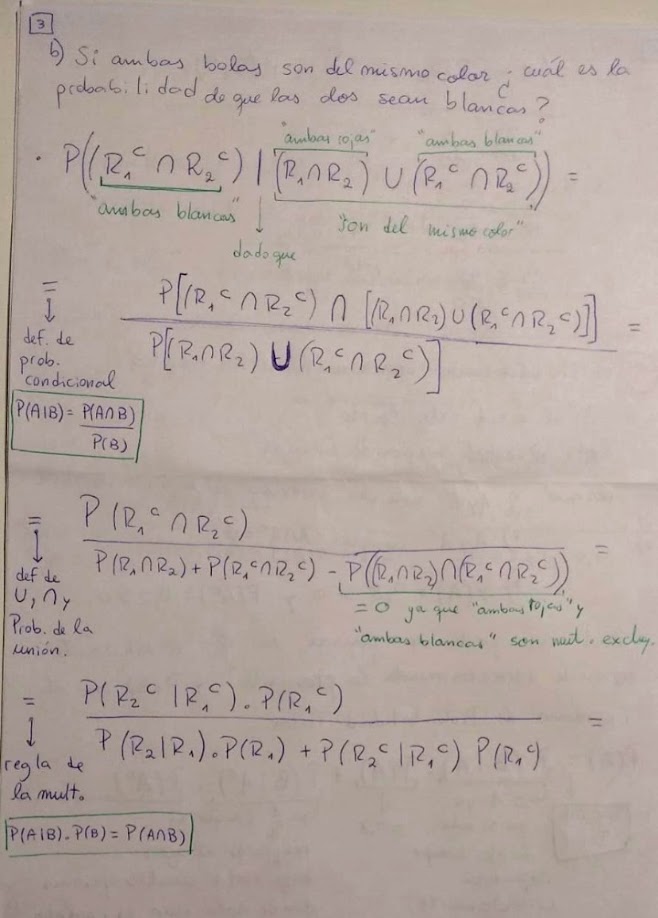 3
b) Si ambas bolas son del mismo color ¿cuál es la
probabilidad de que las dos sean blancas?
"ambas rojas" "ambas blancas"
· P((R₁ᶜ ∩ R₂ᶜ) | (R₁ ∩ R₂) ∪ (R₁ᶜ ∩ R₂ᶜ)) =
"ambas blancas" ↓ "son del mismo color"
dado que
= P[(R₁ᶜ ∩ R₂ᶜ) ∩ [(R₁ ∩ R₂) ∪ (R₁ᶜ ∩ R₂ᶜ)]] =
P[(R₁ ∩ R₂) ∪ (R₁ᶜ ∩ R₂ᶜ)]
↓
def. de
prob.
condicional
P(A|B) = P(A∩B)
P(B)
= P(R₁ᶜ ∩ R₂ᶜ) =
P(R₁ ∩ R₂) + P(R₁ᶜ ∩ R₂ᶜ) - P((R₁ ∩ R₂) ∩ (R₁ᶜ ∩ R₂ᶜ))
↓
def de
∪, ∩ y
Prob. de la
unión.
= 0 ya que "ambas rojas" y
"ambas blancas" son mut. excluy.
= P(R₂ᶜ | R₁ᶜ) . P(R₁ᶜ) =
P(R₂ | R₁) . P(R₁) + P(R₂ᶜ | R₁ᶜ) P(R₁ᶜ)
↓
regla de
la mult.
P(A|B) . P(B) = P(A∩B)